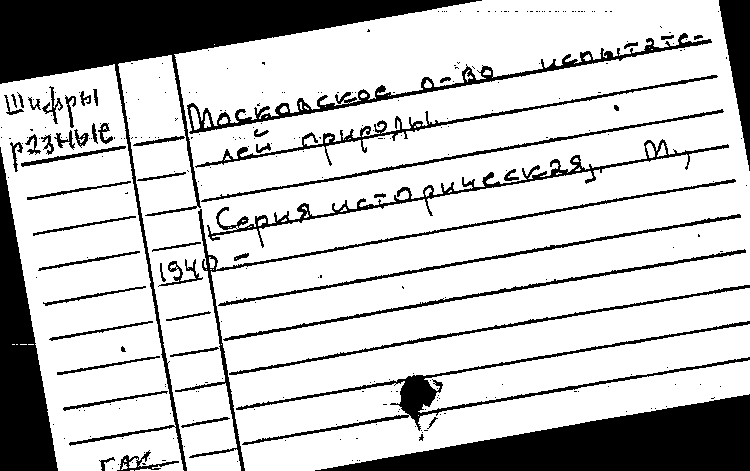 Шифры
разные
Московское о-во испытате-
лей природы.
[Серия историческая]. М.,
1940 -